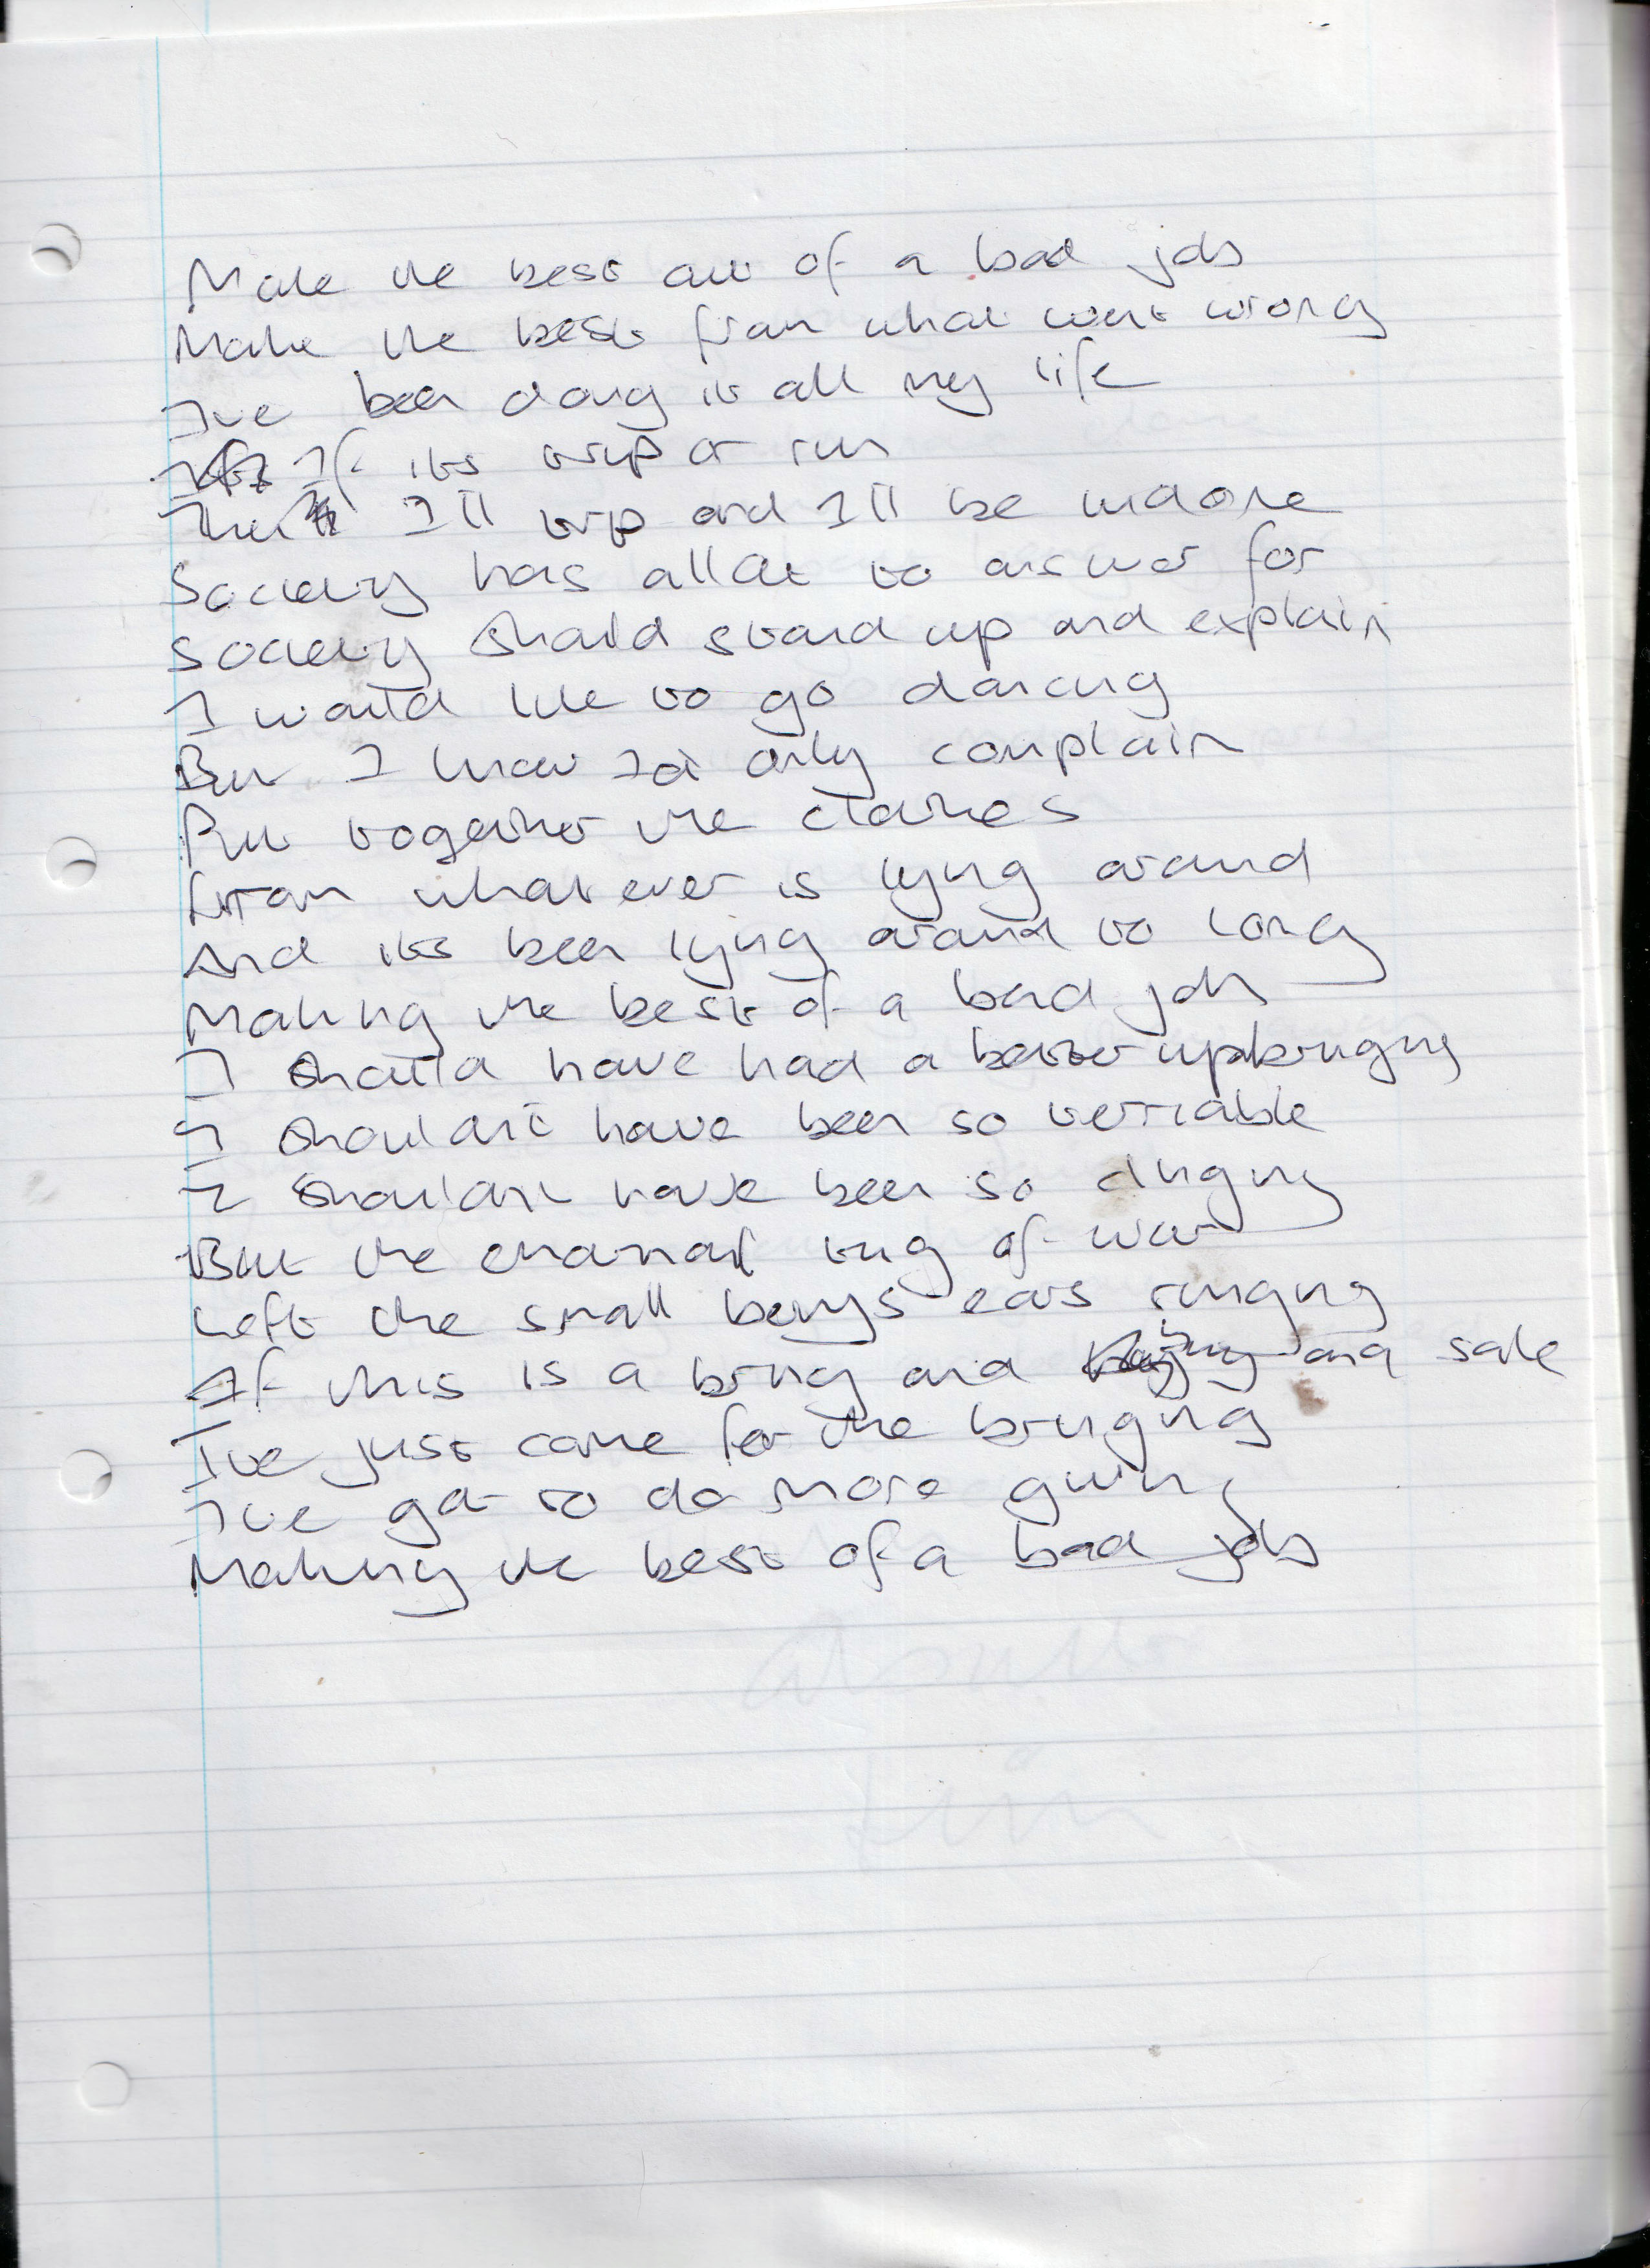 Make the best out of a bad job
Make the best from what went wrong
Ive been doing it all my life
If its trip or run
Then I'll trip and I'll be undone
Society has allot to answer for
Society should stand up and explain
I would like to go dancing
But I know Id only complain
Put together the clothes
from what ever is lying around
And its been lying around to long
Making the best of a bad job
I should have had a better upbringing
I shouldnt have been so veriable
I shouldnt have been so clinging
But the emotional tug of war
Left the small beings ears ringing
If this is a bring and buy and sale
I've just come for the bringing
I've got to do more giving
Making the best of a bad job